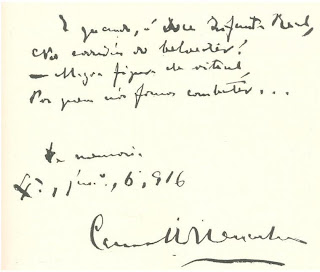 E quando, ó doce Infanta Real,
Nos sorrirás do belveder?
— Magra figura de vitral
Por quem nós fomos combater...
De memoria.
6, 916
Camillo Pessanha